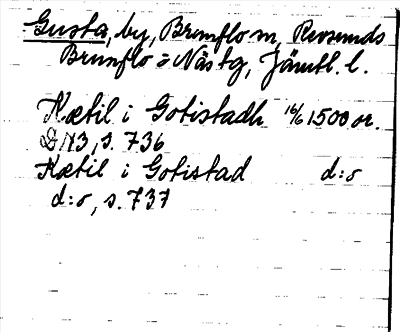 Gusta, by, Brunflo sn, Revsunds
Brunflo o Näs tg, Jämtl. l.
Kætil i Gotistadh 16/6 1500 or.
DN3, s. 736
Kætil i Gotistad d:o
d:o, s. 737